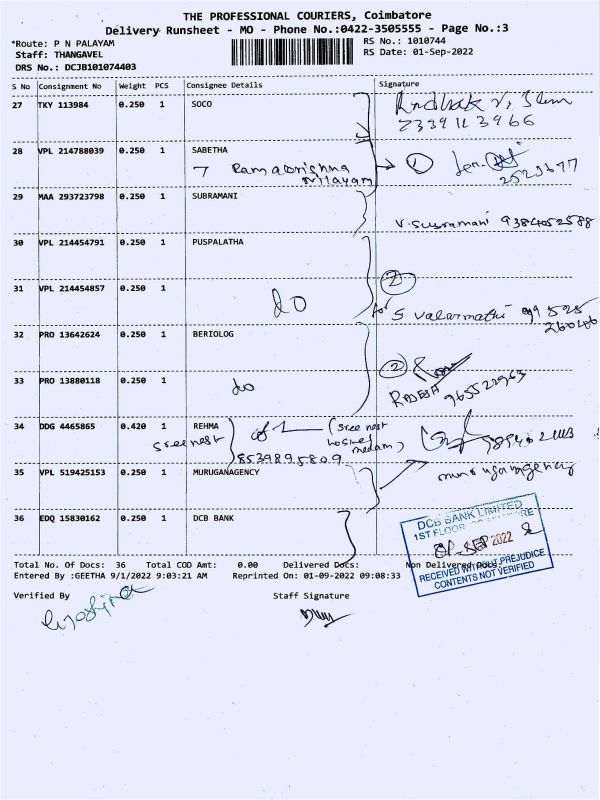 THE PROFESSIONAL COURIERS, Coimbatore
Delivery Runsheet - MO - Phone No.:0422-3505555 - Page No.:3
*Route: P N PALAYAM
Staff: THANGAVEL
DRS No.: DCJB101074403
RS No.: 1010744
RS Date: 01-Sep-2022
S No Consignment No Weight PCS Consignee Details Signature
27 TKY 113984 0.250 1 SOCO
2339113966
28 VPL 214788039 0.250 1 SABETHA
7 Ramakrishna Nilayam 1
2523677
29 MAA 293723798 0.250 1 SUBRAMANI
V. Subramani 9384052588
30 VPL 214454791 0.250 1 PUSPALATHA
2
31 VPL 214454857 0.250 1
do
for S Valarmathi
32 PRO 13642624 0.250 1 BERIOLOG
2
33 PRO 13880118 0.250 1
do
965522963
34 DDG 4465865 0.420 1 REHMA
Sree nest
(Sree nest hostel medam)
8539895809
35 VPL 519425153 0.250 1 MURUGANAGENCY
murugan agency
36 EDQ 15830162 0.250 1 DCB BANK
DCB BANK LIMITED
1ST FLOOR
01 SEP 2022
RECEIVED WITHOUT PREJUDICE
CONTENTS NOT VERIFIED
Total No. Of Docs: 36 Total COD Amt: 0.00 Delivered Docs: Non Delivered Docs:
Entered By :GEETHA 9/1/2022 9:03:21 AM Reprinted On: 01-09-2022 09:08:33
Verified By Staff Signature